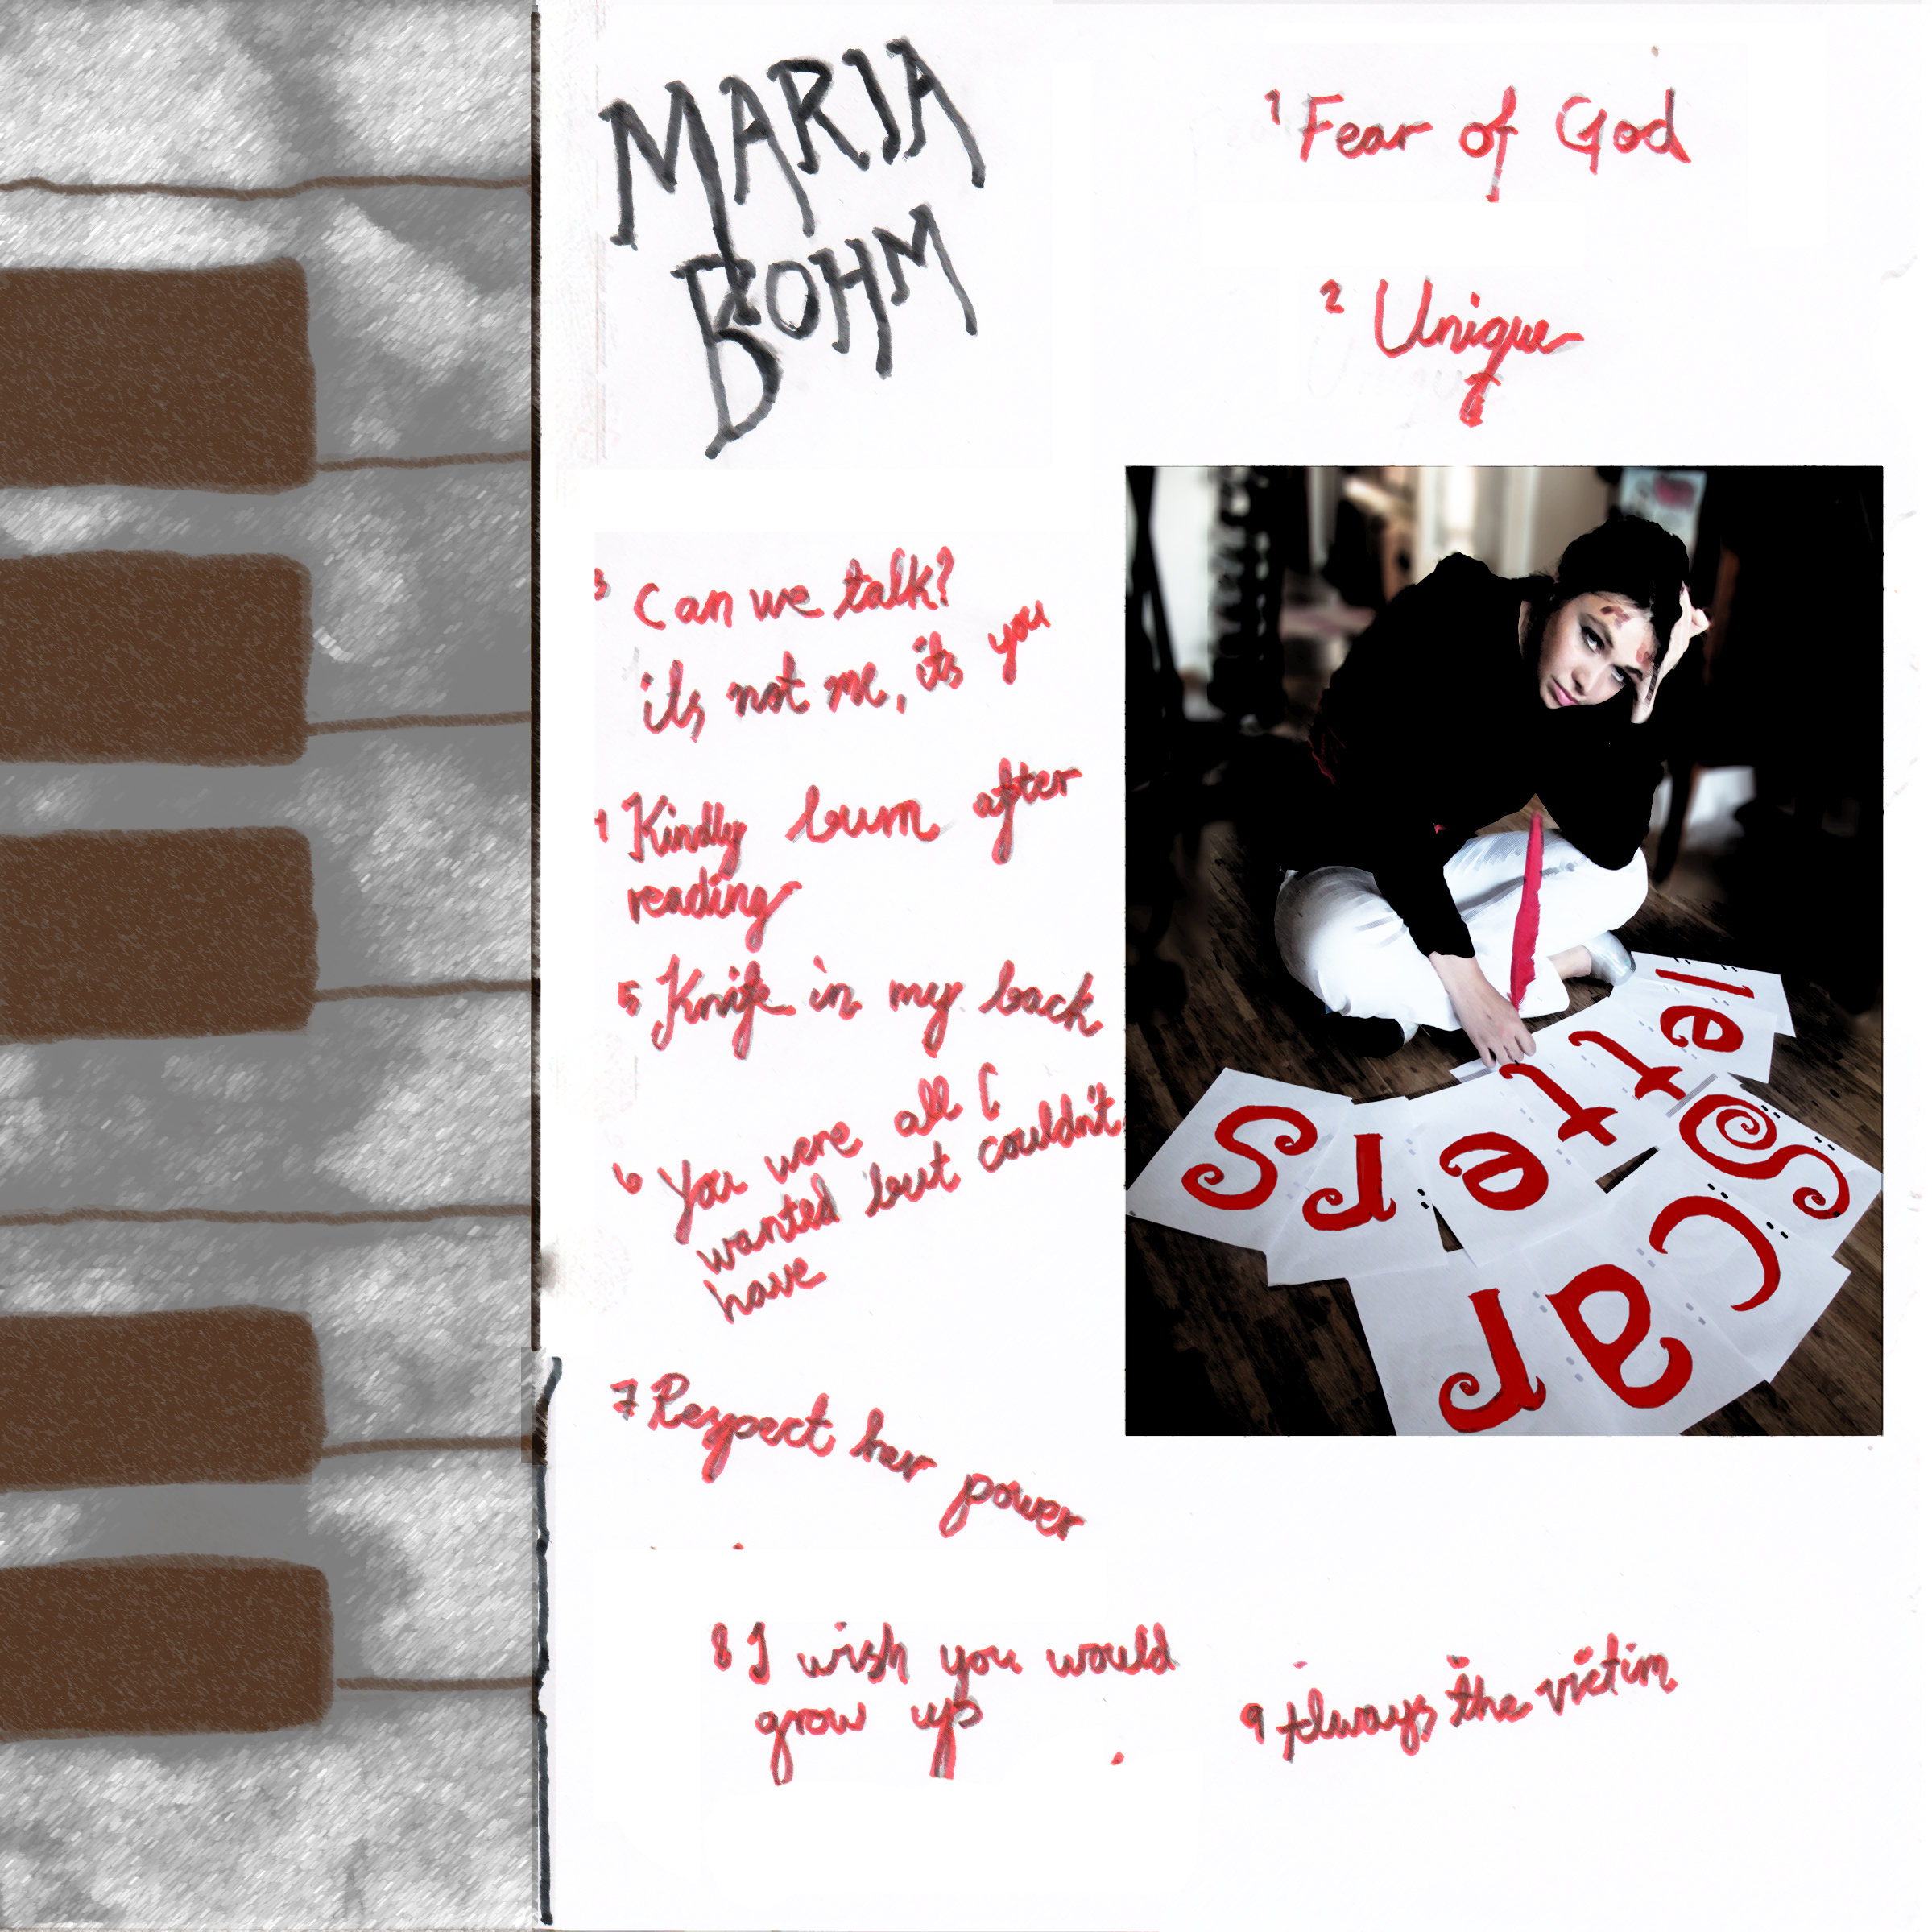 MARIA
BOHM
1 Fear of God
2 Unique
3 Can we talk?
its not me, its you
4 Kindly burn after
reading
5 Knife in my back
6 You were all I
wanted but couldn't
have
7 Respect her power
8 I wish you would
grow up
9 Always the victim
Scar
letters